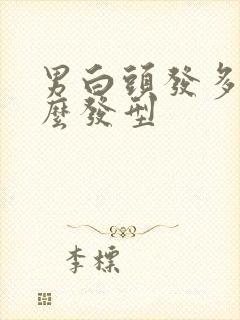 男白頭發多
麼發型
李標